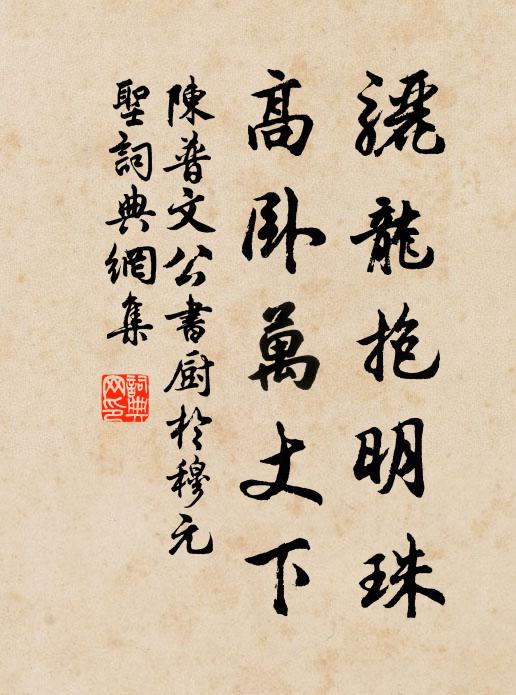 驪龍抱明珠
高卧萬丈下
陳普文公書厨於穆元
聖詞典網集
詞典
网印